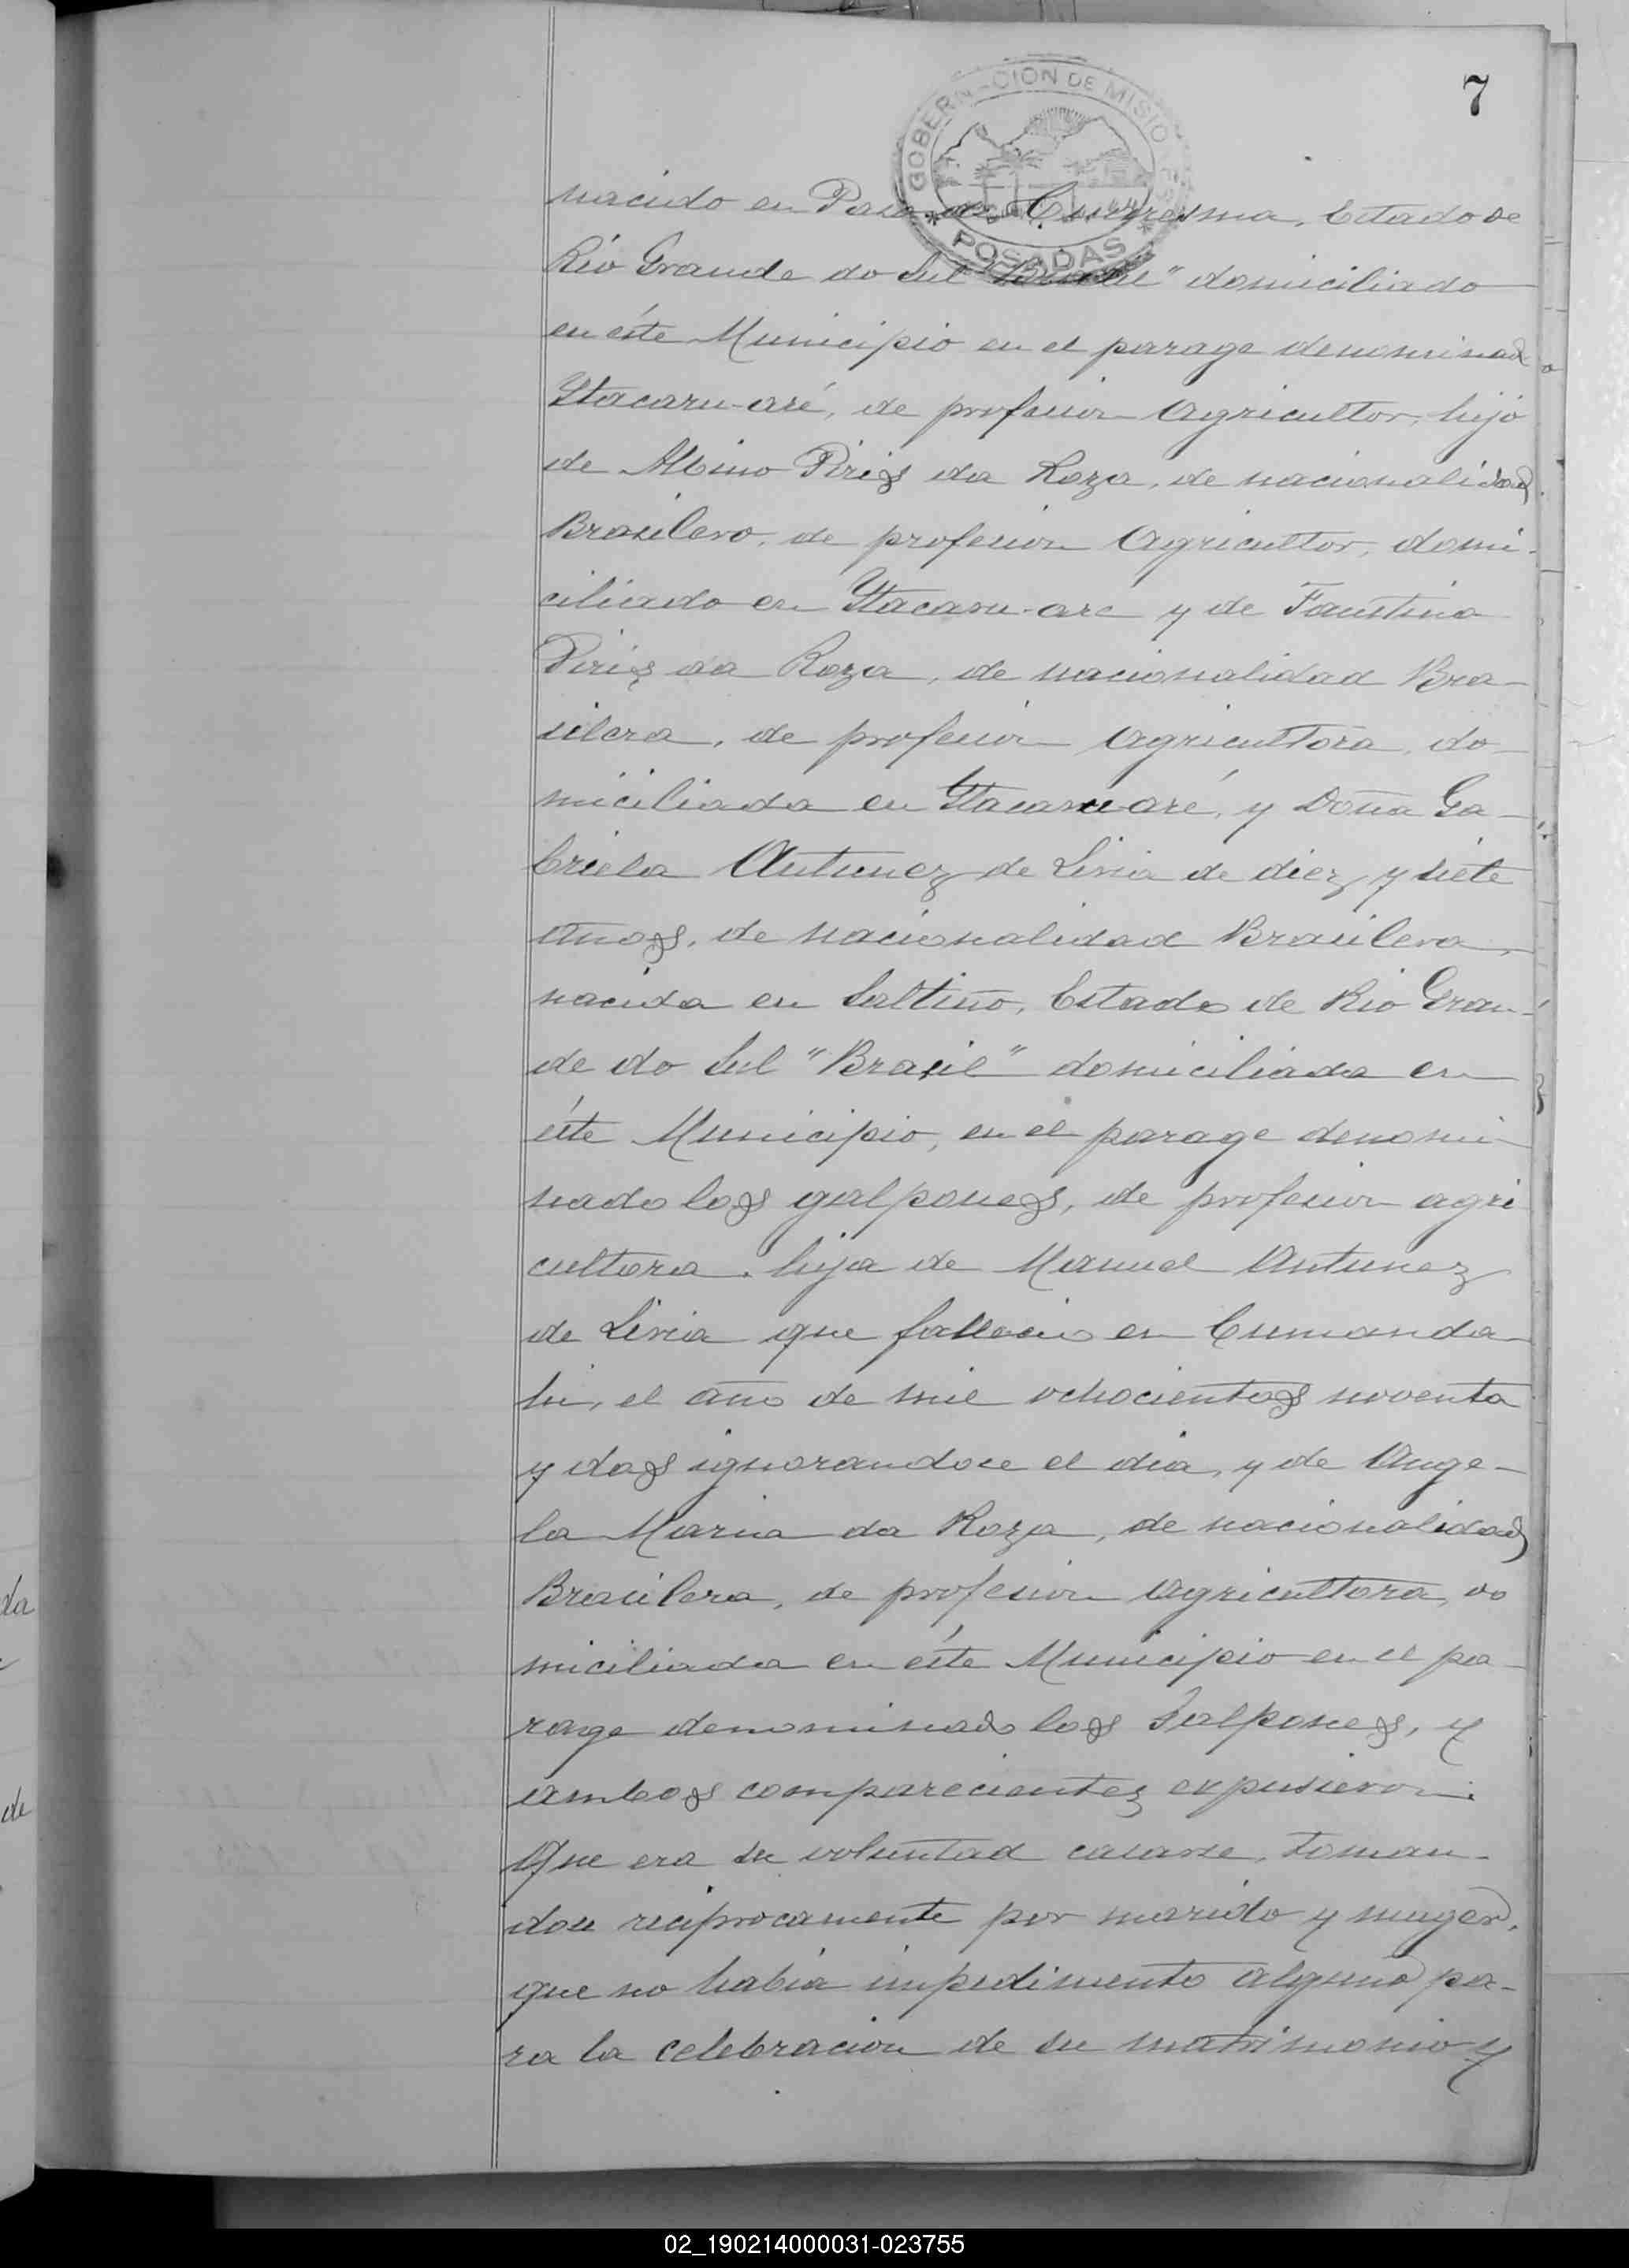 7
GOBERNACION DE MISIONES
* POSADAS *
nacido en Estado de
Rio Grande do Sul "Brasil" domiciliado
en éste Municipio en el parage denominado
Ytacaru-aré, de profesion Agricultor, hijo
de Albino Piris da Roza, de nacionalidad
Brasilero, de profesion Agricultor, domi-
ciliado en Ytacaru-are y de Faustina
Piris da Roza, de nacionalidad Bra-
silera, de profesion Agricultora, do-
miciliada en Ytacaru-aré, y Doña Ga-
briela Antunez de Liria de diez y siete
años, de nacionalidad Brasilera,
nacida en Saltiño, Estado de Rio Gran-
de do Sul "Brasil" domiciliada en
éste Municipio, en el parage denomi-
nado los galpones, de profesion agri
cultora, hija de Manuel Antunez
de Liria que fallecio en Cumanda-
hi, el año de mil ochocientos noventa
y dos ignorandose el dia, y de Ange-
la Maria da Roza, de nacionalidad
Brasilera, de profesion Agricultora, do
miciliada en éste Municipio en el pa-
rage denominado los Galpones, y
ambos comparecientes expusieron:
Que era su voluntad casarse, toman-
dose reciprocamente por marido y muger,
que no habia impedimento alguno pa-
ra la celebracion de su matrimonio y
02_190214000031-023755